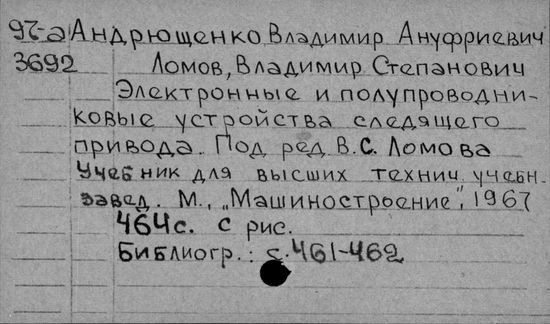 97-а Андрющенко, Владимир Ануфриевич
3692 Ломов, Владимир Степанович
Электронные и полупроводни-
ковые устройства следящего
привода. Под ред В.С. Ломова
Учебник для высших технич. учебн.
завед. М., „Машиностроение", 1967
464с. с рис.
Библиогр.: с. 461-462